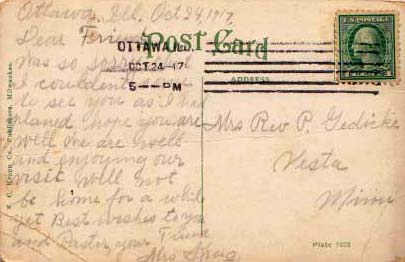 Ottawa, Ill. Oct 24, 1917
Dear Friend
Was so sorry I
couldent come
to see you as I had
planed hope you are
well we are well
and enjoying our
visit will not
be home for a whil
yet Best wishes to you
and Pastor, your Friend
Mrs
Post Card
OTTAWA, ILL.
OCT 24-17
5-PM
ADDRESS
U.S. POSTAGE
Mrs Rev P. Gedicke
Vesta
Minn
E. C. Kropp Co., Publishers, Milwaukee.